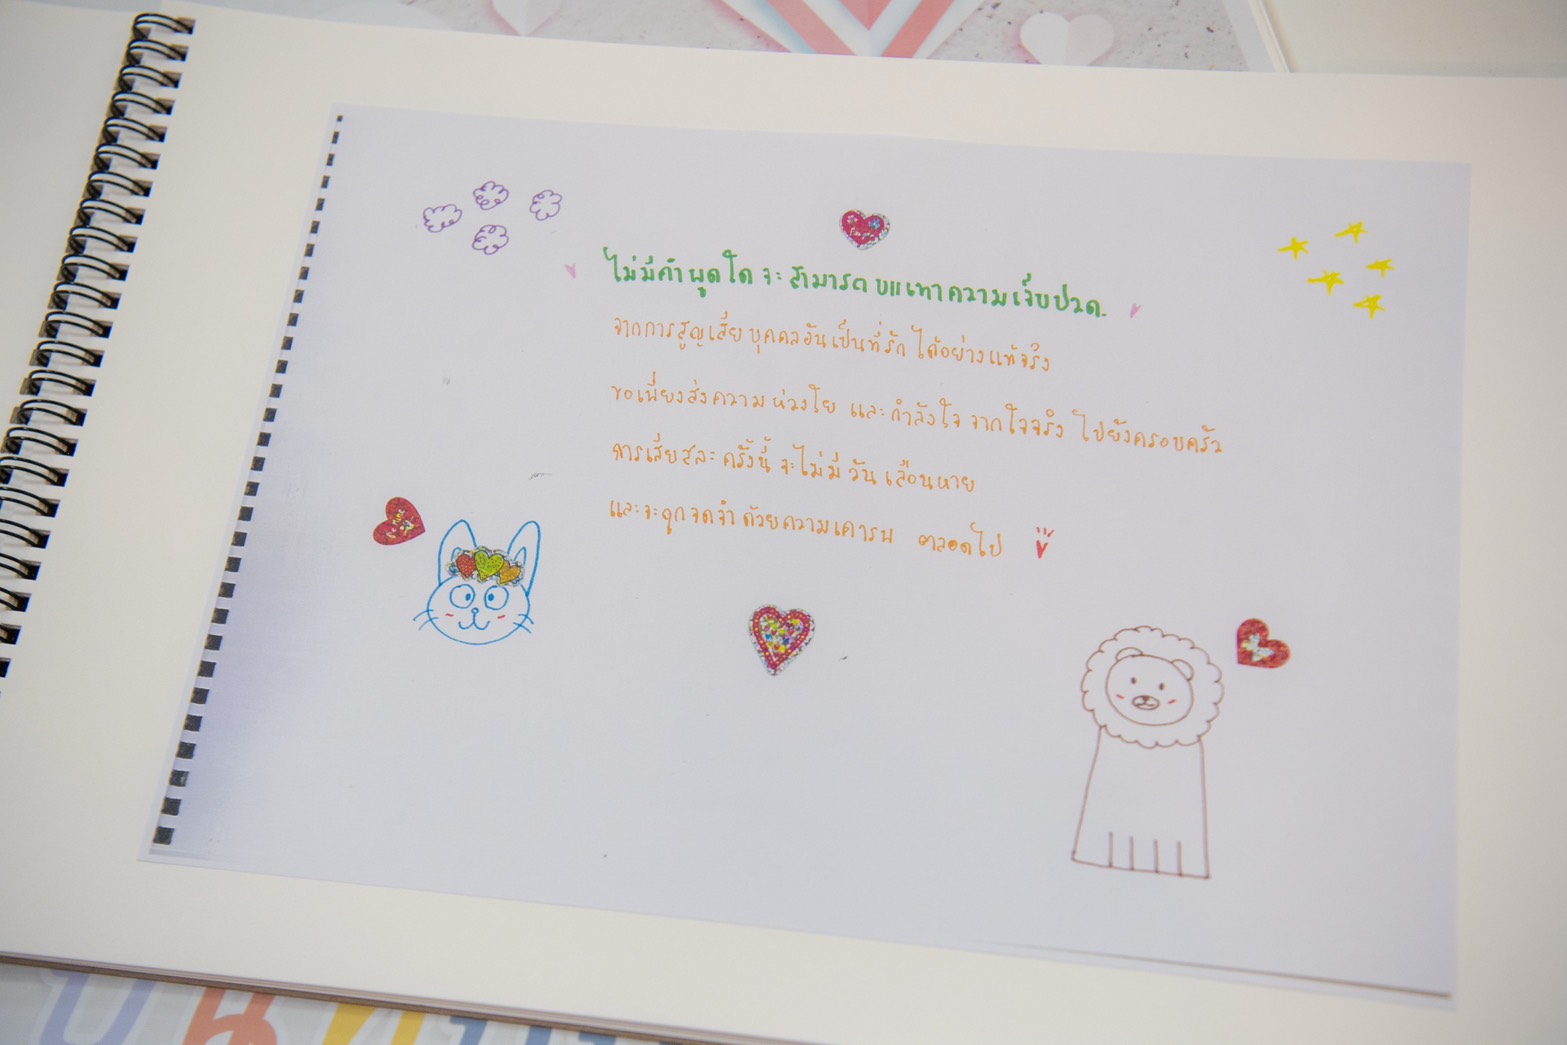 ไม่มีคำพูดใดจะสามารถบแเทาความเจ็บปวด
จากการสูญเสียบุคคลอันเป็นที่รักได้อย่างแท้จริง
ขอเพียงส่งความห่วงใย และกำลังใจจากใจจริง ไปยังครอบครัว
การเสียสละครั้งนี้จะไม่มีวันเลือนหาย
และจะถูกจดจำด้วยความเคารพ ตลอดไป